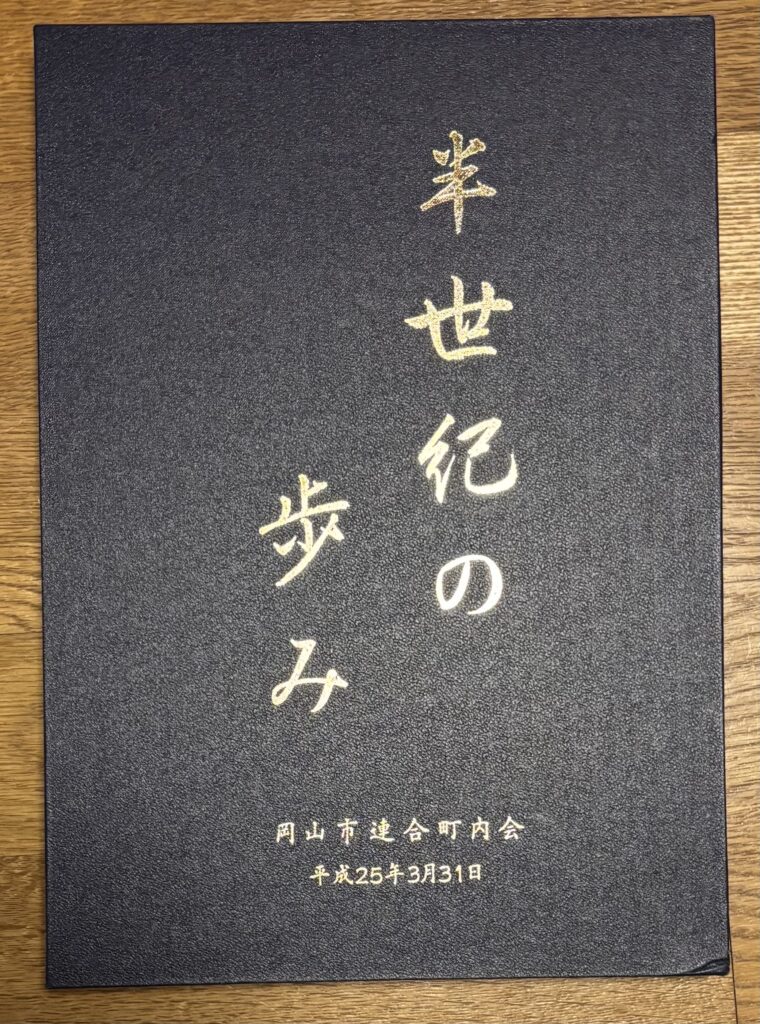 半世紀の
歩み
岡山市連合町内会
平成25年3月31日